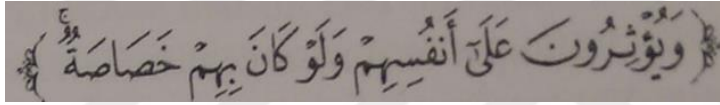 ﴿ وَيُؤْثِرُونَ عَلَىٰٓ أَنفُسِهِمْ وَلَوْ كَانَ بِهِمْ خَصَاصَةٌۚ ﴾